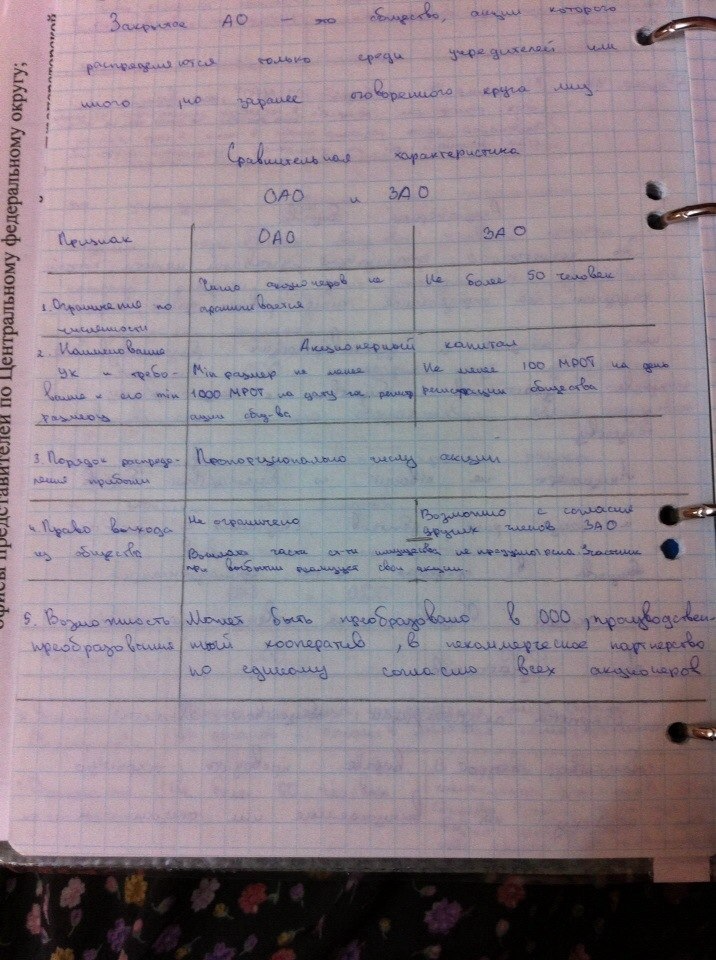 Закрытое АО – это общество, акции которого
распределяются только среди учредителей или
иного, но заранее оговоренного круга лиц
Сравнительная характеристика
ОАО и ЗАО
Признак ОАО ЗАО
1. Ограничение по численности
Число акционеров не
ограничивается
Не более 50 человек
2. Наименование
УК и требо-
вание к его min
размеру
Акционерный капитал
Min размер не менее
1000 МРОТ на дату гос. регистр
ации общ-ва
Не менее 100 МРОТ на день
регистрации общества
3. Порядок распреде-
ления прибыли
Пропорционально числу акций
4. Право выхода
из общества
Не ограничено
Возможно с согласия
других членов ЗАО
Выплата части ст-ти имущества не предусмотрена. Участник
при выбытии реализует свои акции.
5. Возможность
преобразования
Может быть преобразовано в ООО, производствен-
ный кооператив, в некоммерческое партнерство
по единому согласию всех акционеров
офисы представителей по Центральному федеральному округу;